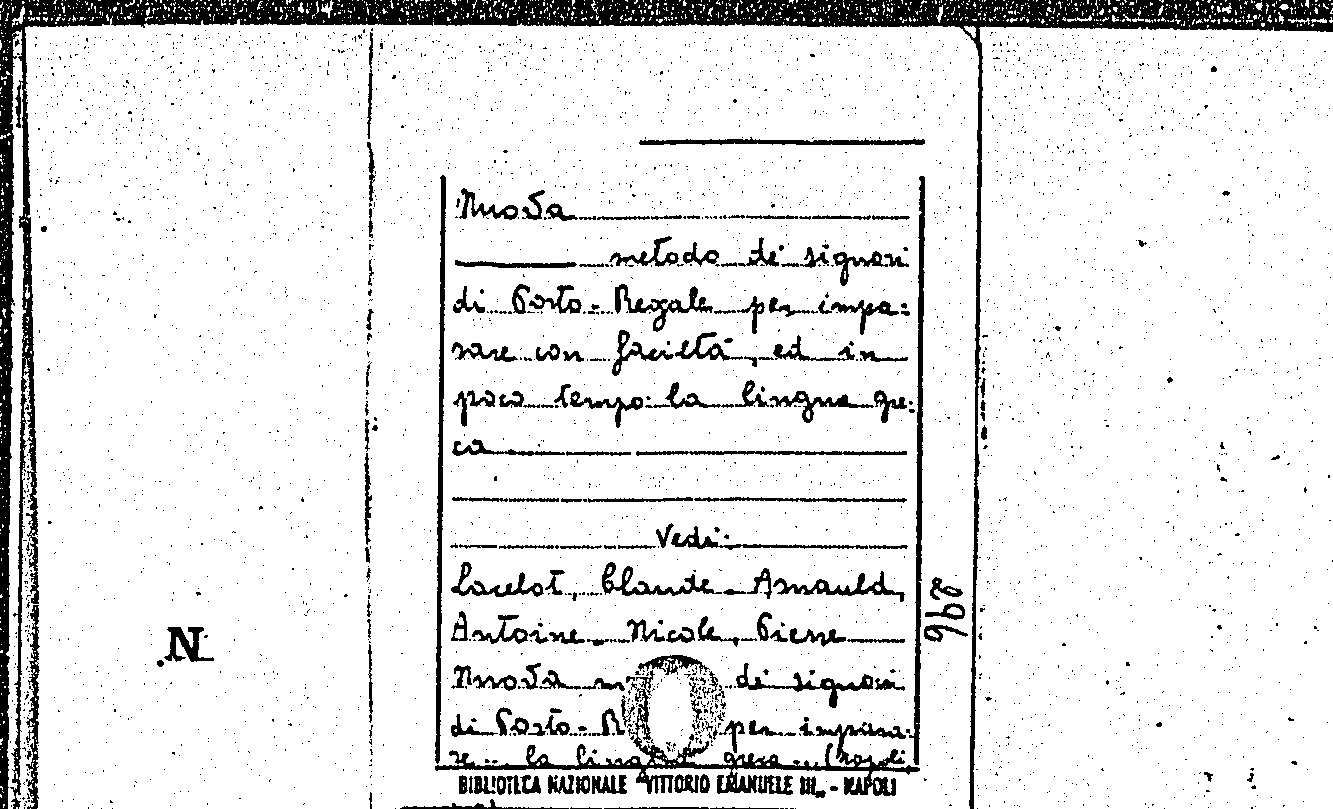 Nuova
metodo de' signori
di Porto-Regale per impa=
rare con facilta, ed in
poco tempo la lingua gre=
ca
Vedi:
Lacelot, Claude - Arnauld,
Antoine - Nicole, Pierre
Nuova de' signori
di Porto-R per impara=
re... la lingua greca... (Napoli,
BIBLIOTECA NAZIONALE "VITTORIO EMANUELE III" - NAPOLI
N